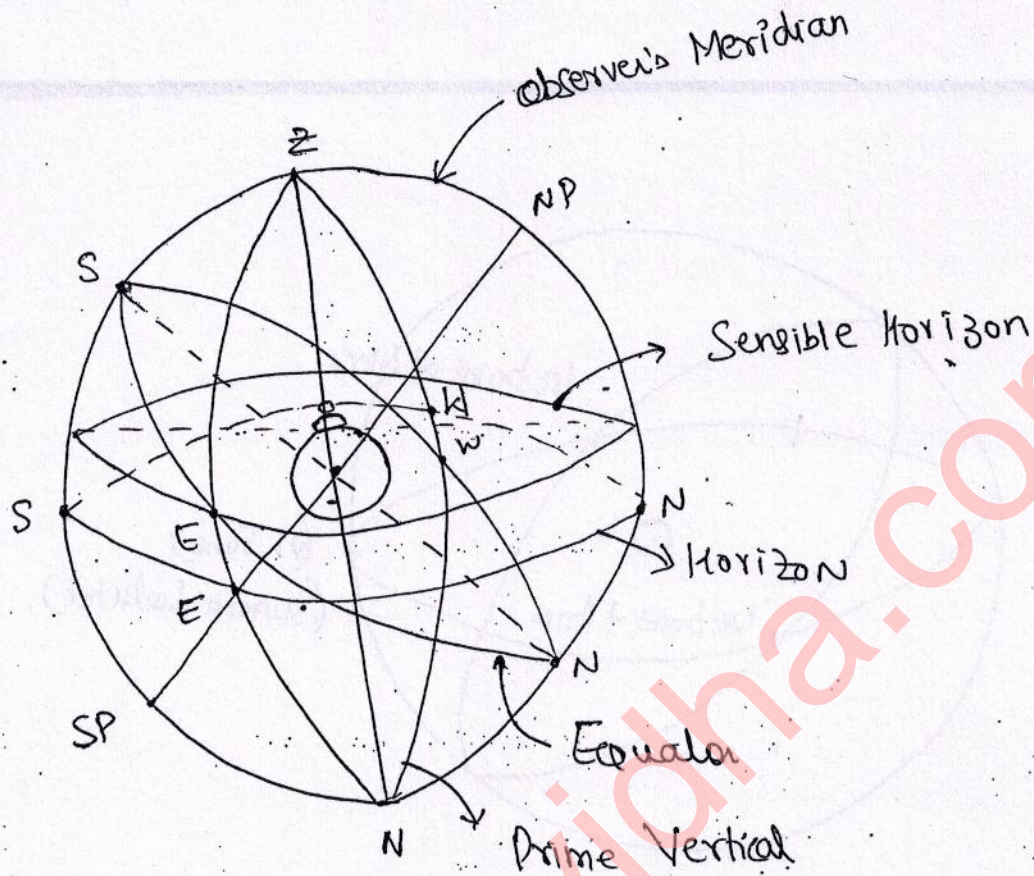 Observer's Meridian
Z
NP
S
Sensible Horizon
W
W
S
E
N
Horizon
E
N
SP
Equator
N
Prime Vertical
vidha.co